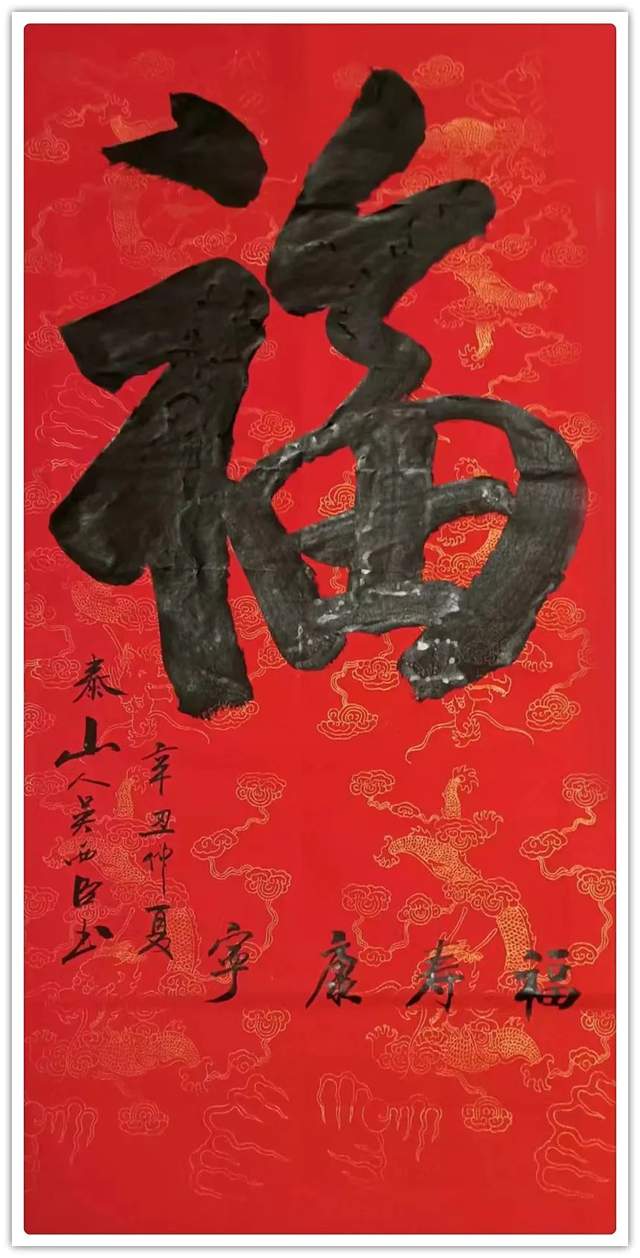 福
福寿康宁
辛丑仲夏
泰山人吴西臣书